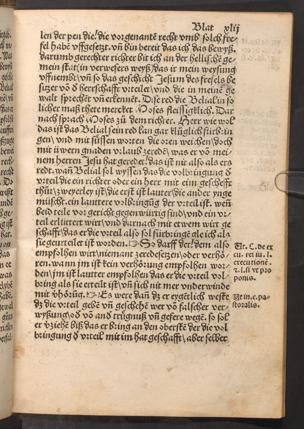 Blat xlij
len der pen die/ die vorgenant recht vmb solch fre-
fel habē vffgesetzt. vñ bin bereit das ich das bewyß.
darumb gerechter richter bit ich an der hellische ge-
mein stat/ in verwesers weyß/ das ir mein weysung
vffnemēt/ vñ so das geschicht Jesum des frefels be
sitzer vō d herrschafft vrteilet/ vnd die in meine ge
walt sprechēt vñ erkennēt. Diß red die Belial in so
licher maß thet/ mercket Moses fleissigtlich. Dar
nach sprach Moses zū dem richter. Herr wie wol
das ist das Belial sein red kan gar klüglich fürbrin
gen/ vnd mit süssen worten die oren weichen/ doch
mit üwern gnaden vrlaub zered/ was er vō mei
nem herren Jesu hat geredet/ das ist nit also als ers
redt. wañ Belial sol wyssen das die volbringūg d
vrteil die ein richter oder ein herr mit eim gescheffte
thūt/ zweyerley ist/ die erst ist lauter/ die ander zuge
mischt. ein lauttere volbringūg der vrteil ist. weñ
beid teile vor gericht gegenwürtig sind/ vnd ein vr-
teil erlüttert würt/ vnd darnach mit etwem würt ge
schafft/ das er die vrteil also sol fürbringē gleich als
sie geurteilet ist worden. So darff der/ dem als
empfolhen wirt/ niemantz zeredesetzen/ oder verhō-
ren. wann jm ist kein verhōrung empfolhen wor-
den/ jm ist lautter empfolhen das er die vrteil vol-
bring als sie erteilt ist/ vñ sich nit mer vnderwinde
mit vhōrūg. Es were dañ dz er eygētlich weste
dz die vrteil gebē vñ geschehē wer vō falscher ver-
wysung/ od vō and trügnuß vñ gefere wegē. so sol
er vziehē biß das er bring an den oberstē der die vol
bringung d vrteil mit im hat geschafft/ aber selber